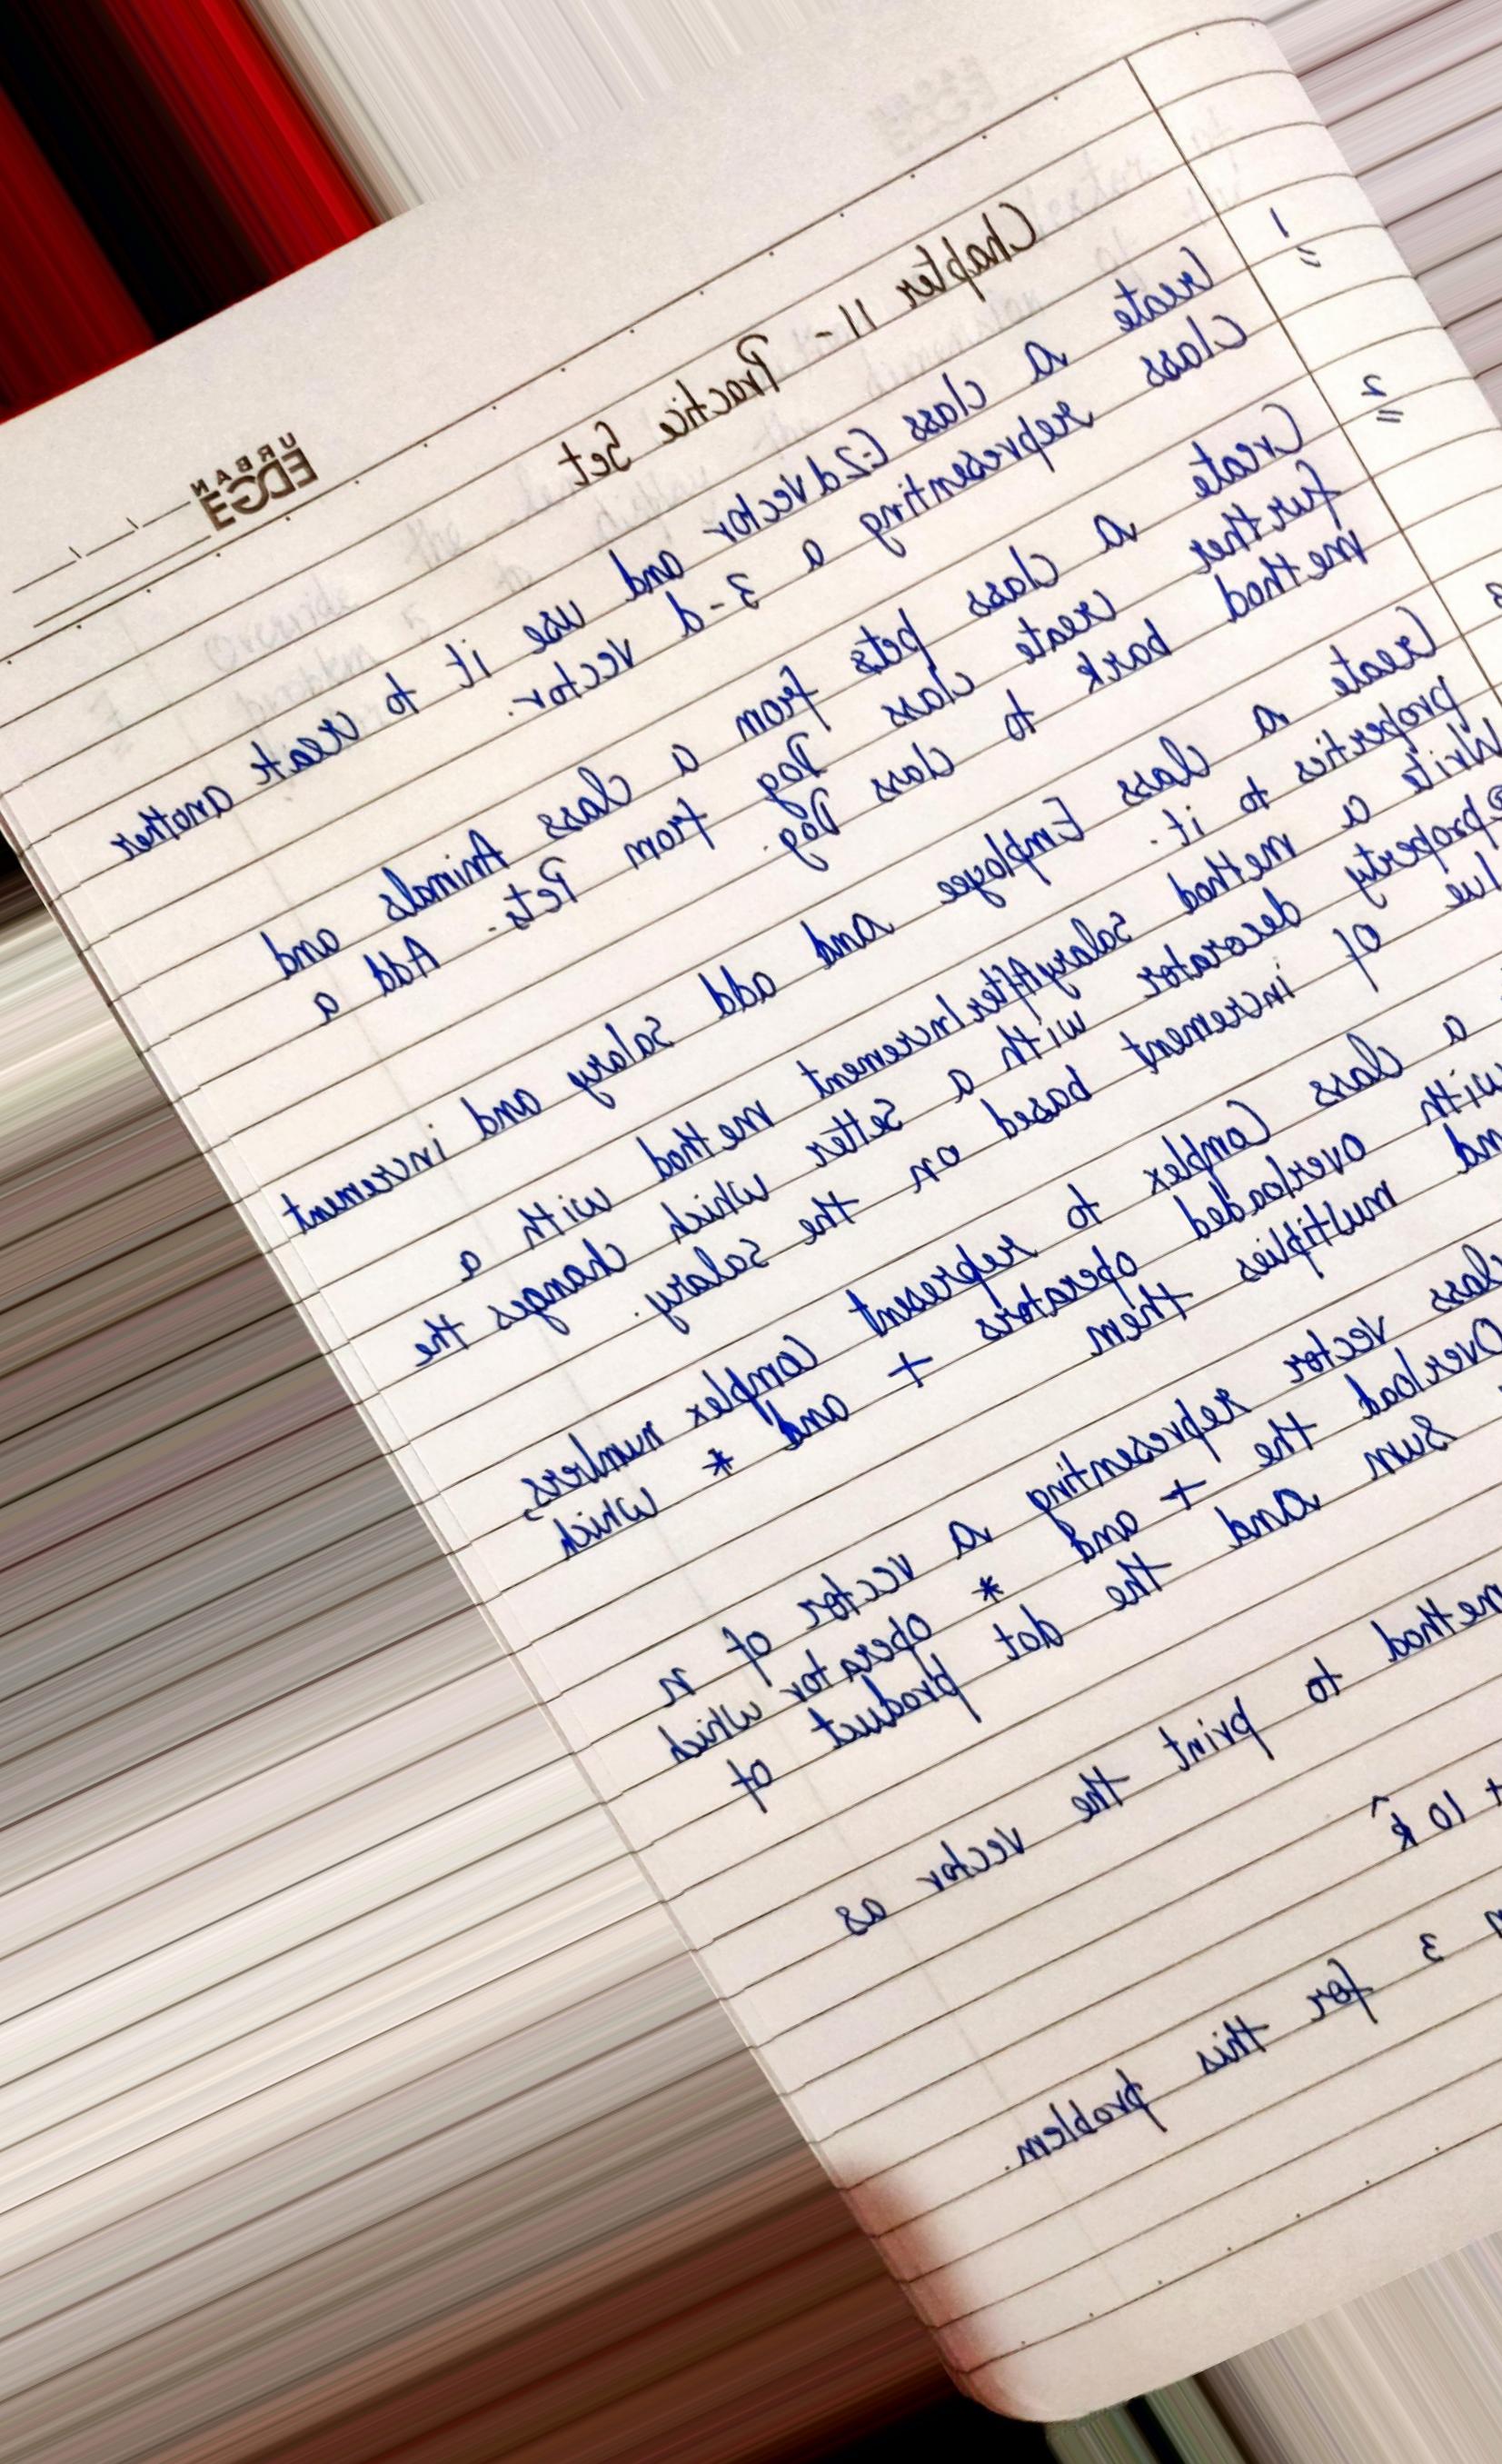 URBAN
EDGE
Chapter 11 - Practice Set
1
Create a class C-2dvector and use it to creat another
class representing a 3-d vector.
2
Create a class pets from a class Animals and
further create class Dog from Pets. Add a
method bark to class Dog.
3
Create a class Employee and add salary and increment
properties to it.
Write a method salaryAfterIncrement method with a
@property decorator with a setter which changes the
lue of increment based on the salary.
a class Complex to represent Complex numbers,
with overloaded operators + and * which
nd multiplies them
class vector representing a vector of n
Overload the + and * operator which
sum and the dot product of
method to print the vector as
+ 10 k̂
n 3 for this problem.